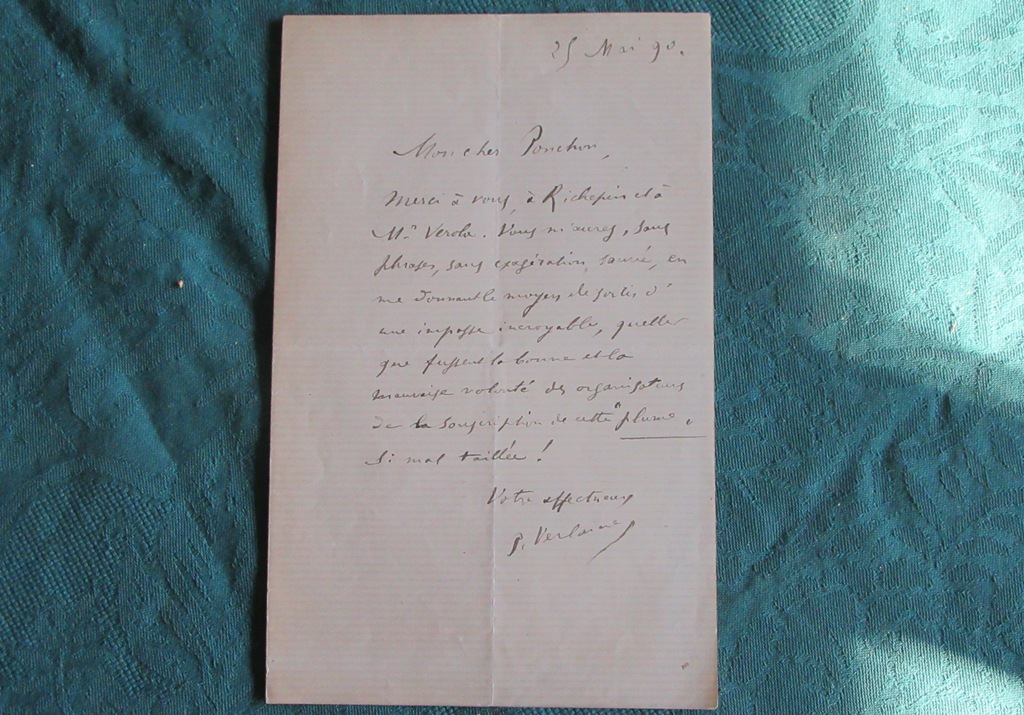 25 Mai 90.
Mon cher Ponchon,
Merci à vous, à Richepin et à
Mr Verola. Vous m'aurez, sans
phrases, sans exagération, sauvé, en
me donnant le moyen de sortir d'
une impasse incroyable, quelle
que fussent la bonne et la
mauvaise volonté des organisateurs
de la souscription de cette "plume"
si mal taillée !
Votre affectueux
P. Verlaine